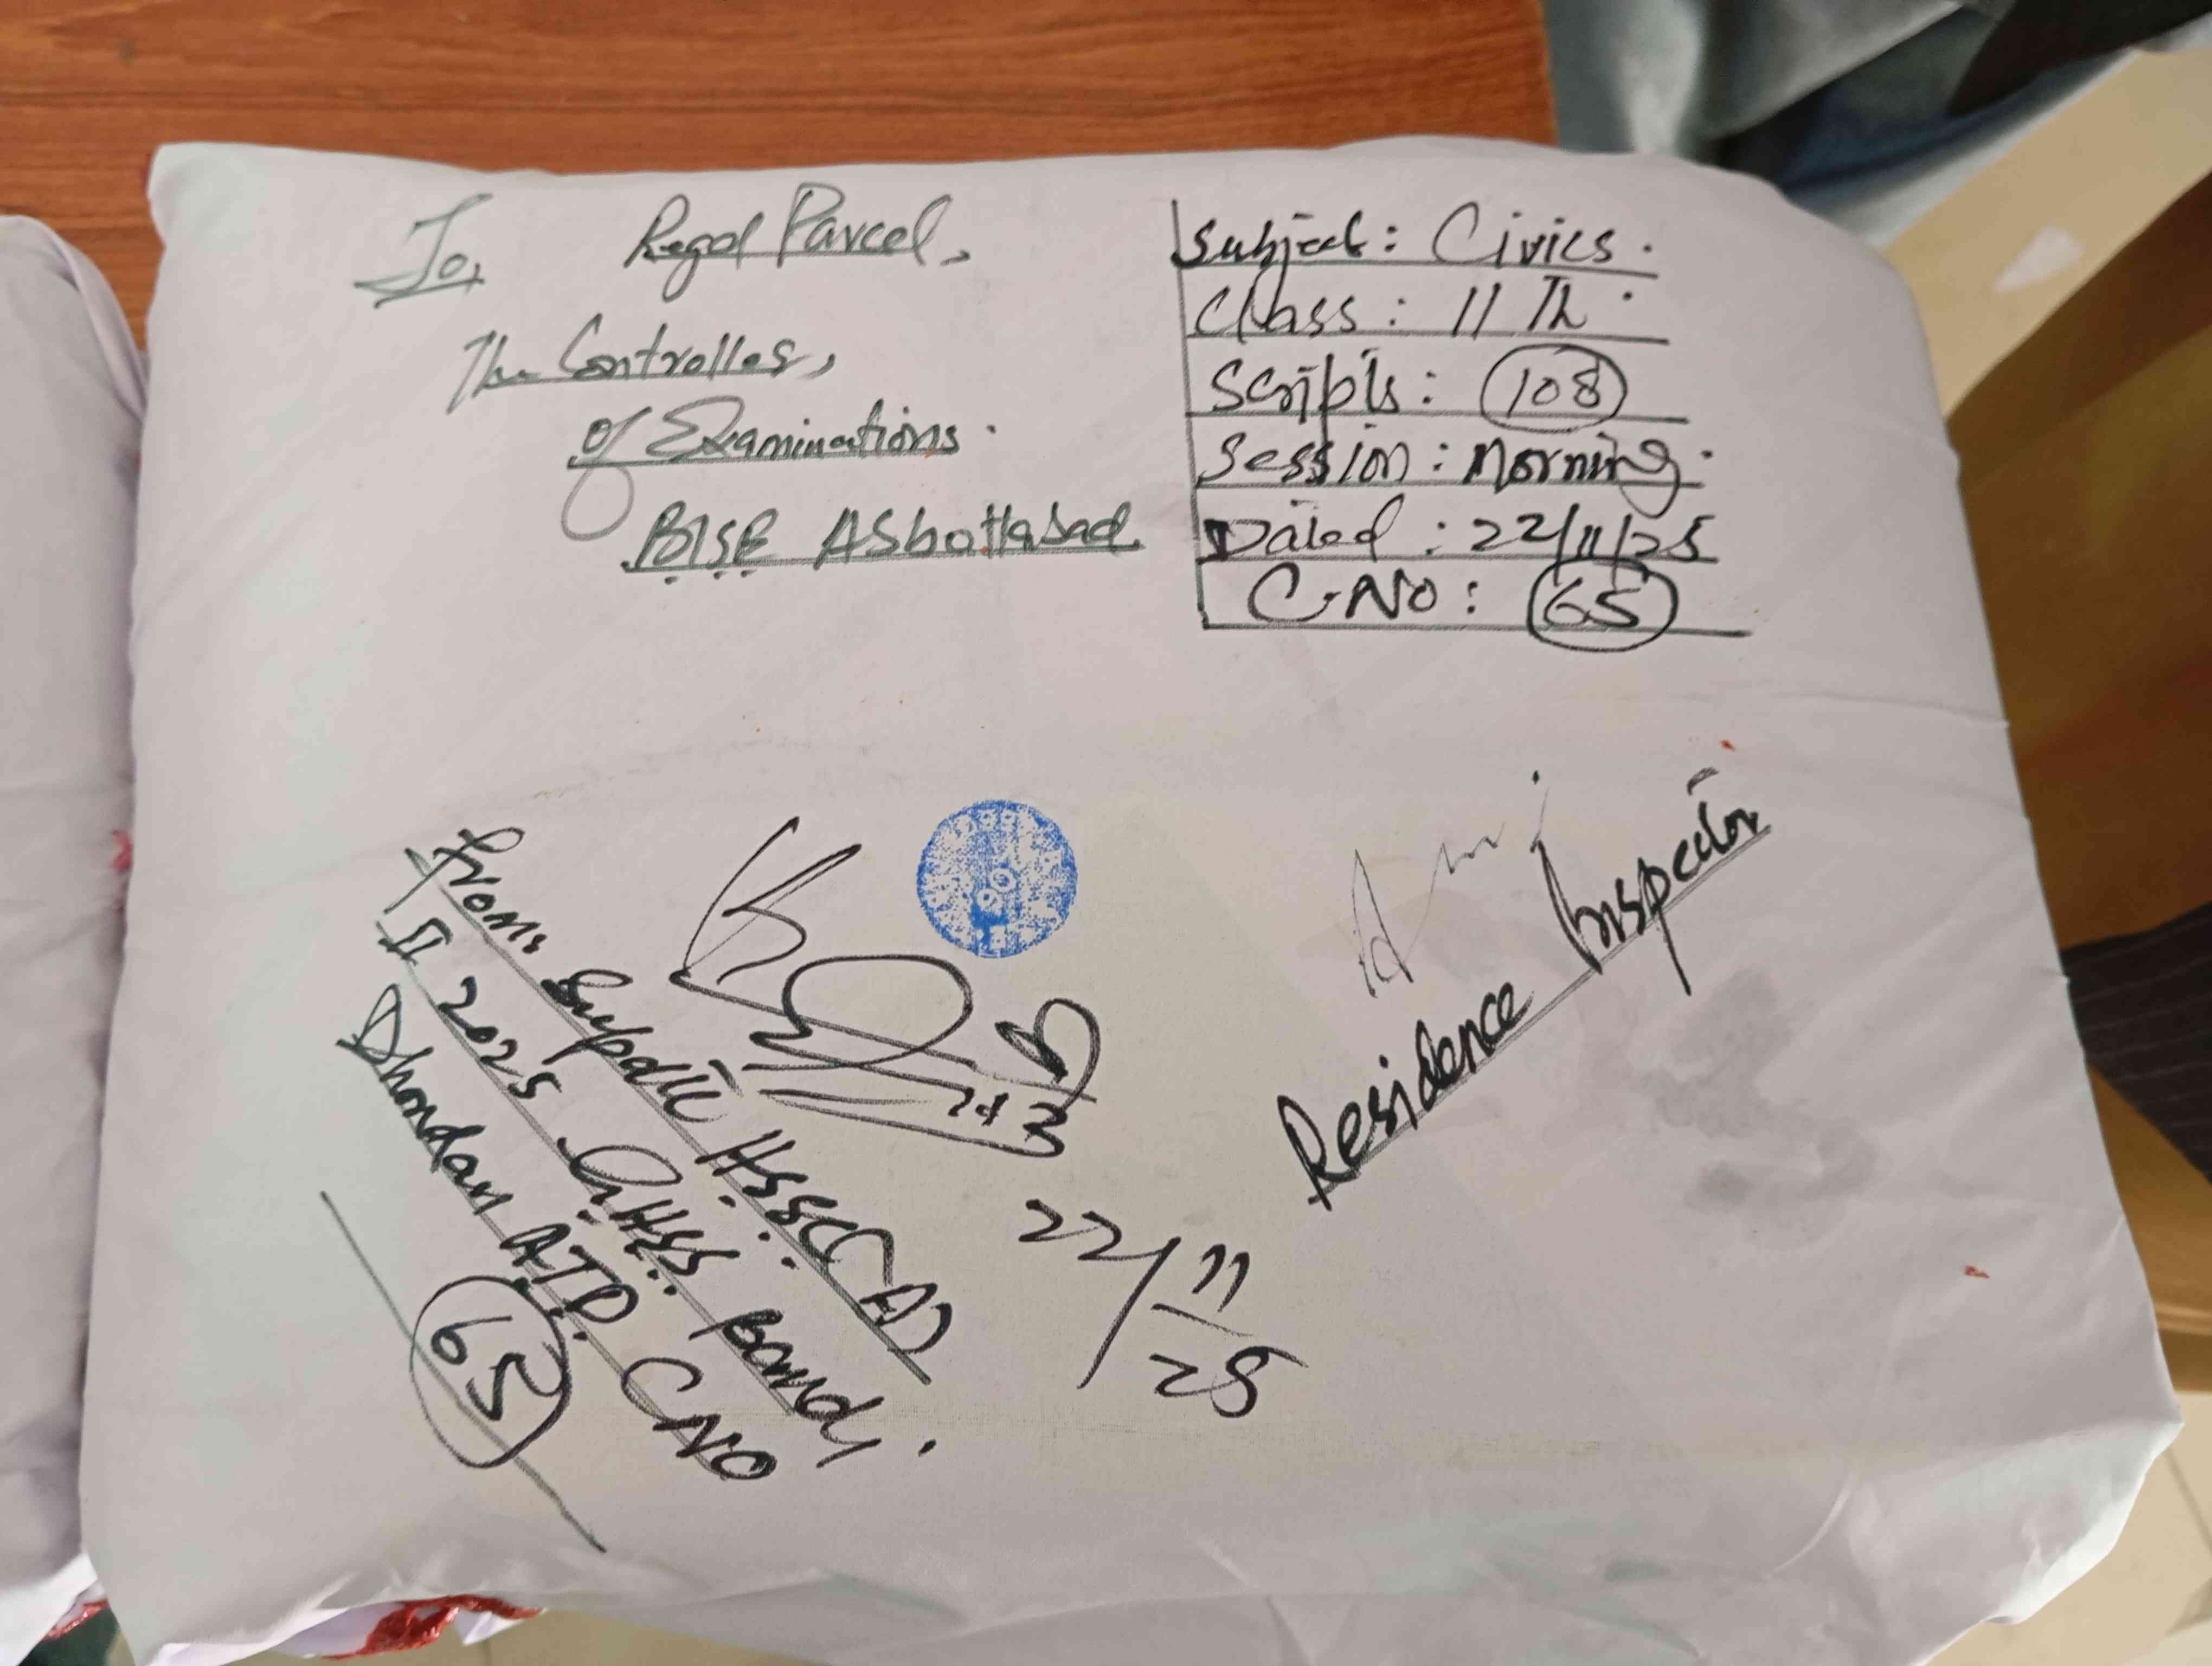 To, Regd Parcel,
The Controller,
of Examinations.
BISE Abbottabad
Subject: Civics.
Class: 11 Th
Scripts: 108
Session: Morning.
Dated: 22/11/25
C.No: 65
From: Supdtt H.S.S.C (A)
II 2025 G.H.S.S. Banda
Dhondan A.T.D. C NO
65
22/11
25
Residence Inspector